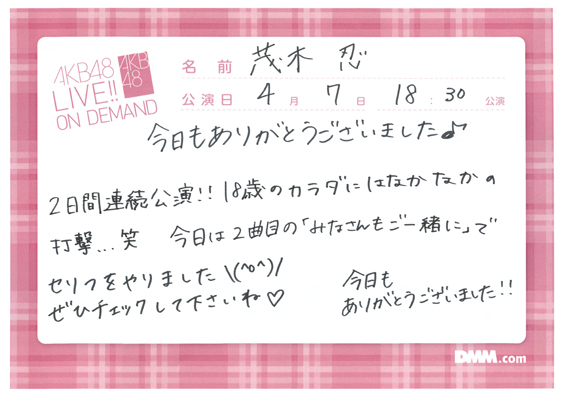 AKB48
LIVE!!
ON DEMAND
AKB
48
名前 茂木 忍
公演日 4月 7日 18:30 公演
今日もありがとうございました♪
2日間連続公演!! 18歳のカラダにはなかなかの
打撃...笑 今日は2曲目の「みなさんもご一緒に」で
セリフをやりました \(^o^)/
ぜひチェックして下さいね♡
今日も
ありがとうございました!!
DMM.com